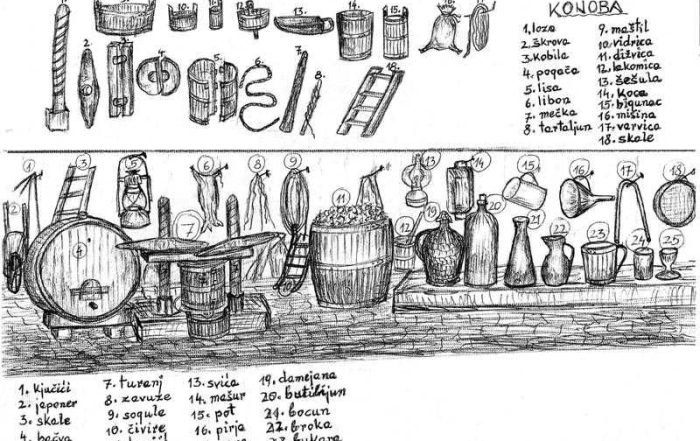 KONOBA
1. loza
2. škrova
3. kobila
4. pogača
5. lisa
6. libon
7. mečka
8. tartaljun
9. maštil
10. vidrica
11. diživica
12. lakomica
13. šešula
14. koca
15. bigunac
16. mišina
17. varvica
18. skale
1. ključići
2. jeponer
3. skale
4. bačva
7. turanj
8. zavuze
9. sogule
10. čivire
13. svića
14. mašur
15. pot
16. pirja
19. damejana
20. butilijun
21. bocun
22. broka
23. bukara